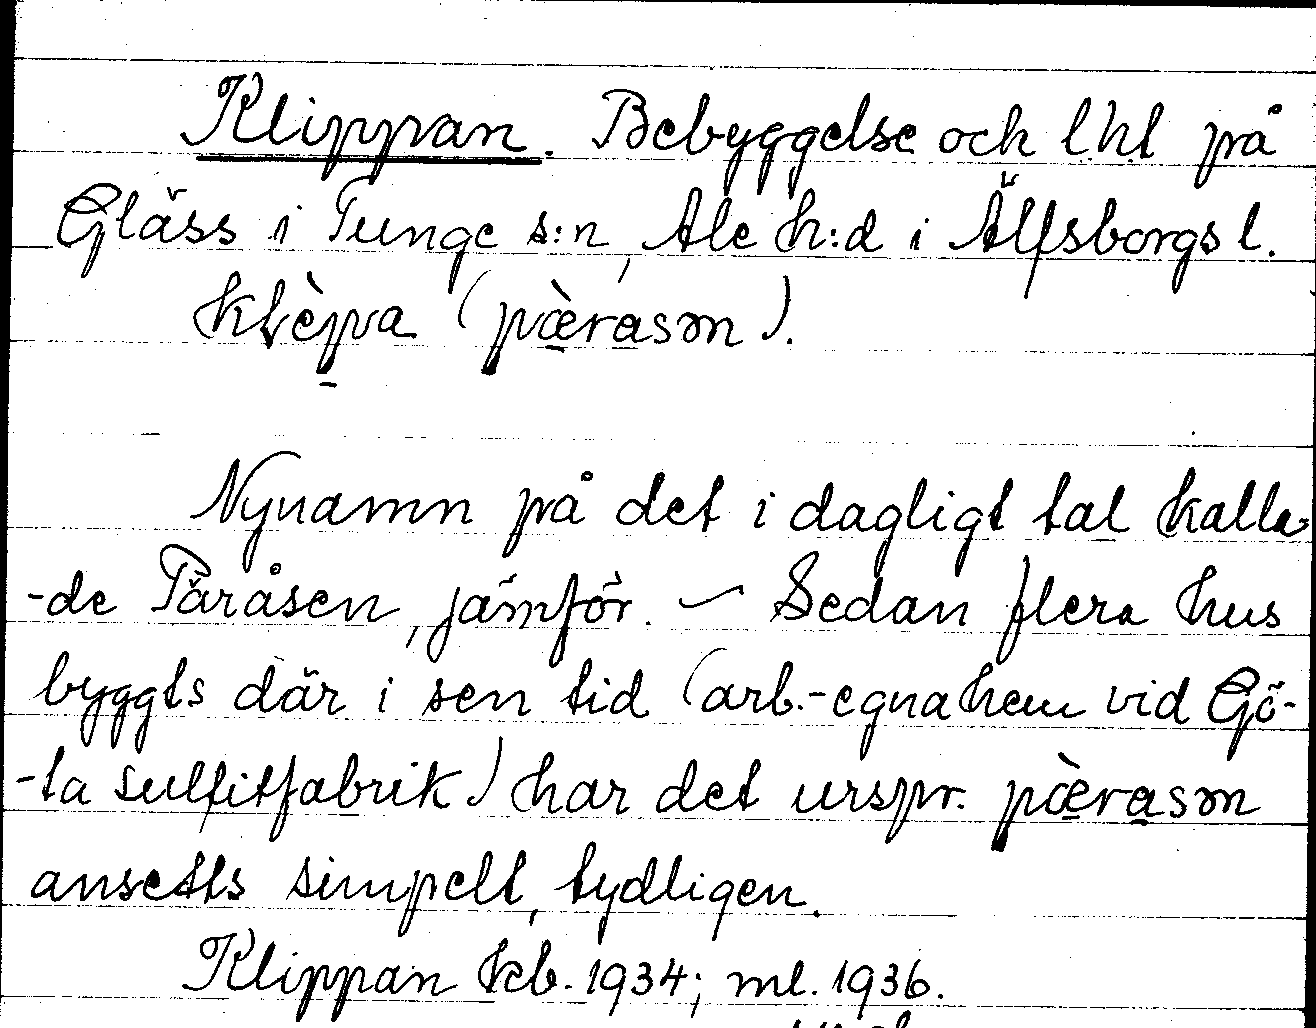 Klippan. Bebyggelse och lhl på
Gläss i Tunge s:n, Ale h:d i Älfsborgs l.
klèpa (pæ̀rasɘn).
Nynamn på det i dagligt tal kalla-
-de Päråsen, jämför. ~ Sedan flera hus
byggts där i sen tid (arb.-egnahem vid Gö-
-ta sulfitfabrik) har det urspr. pæ̀rasɘn
ansetts simpelt, tydligen.
Klippan kb. 1934; ml. 1936.